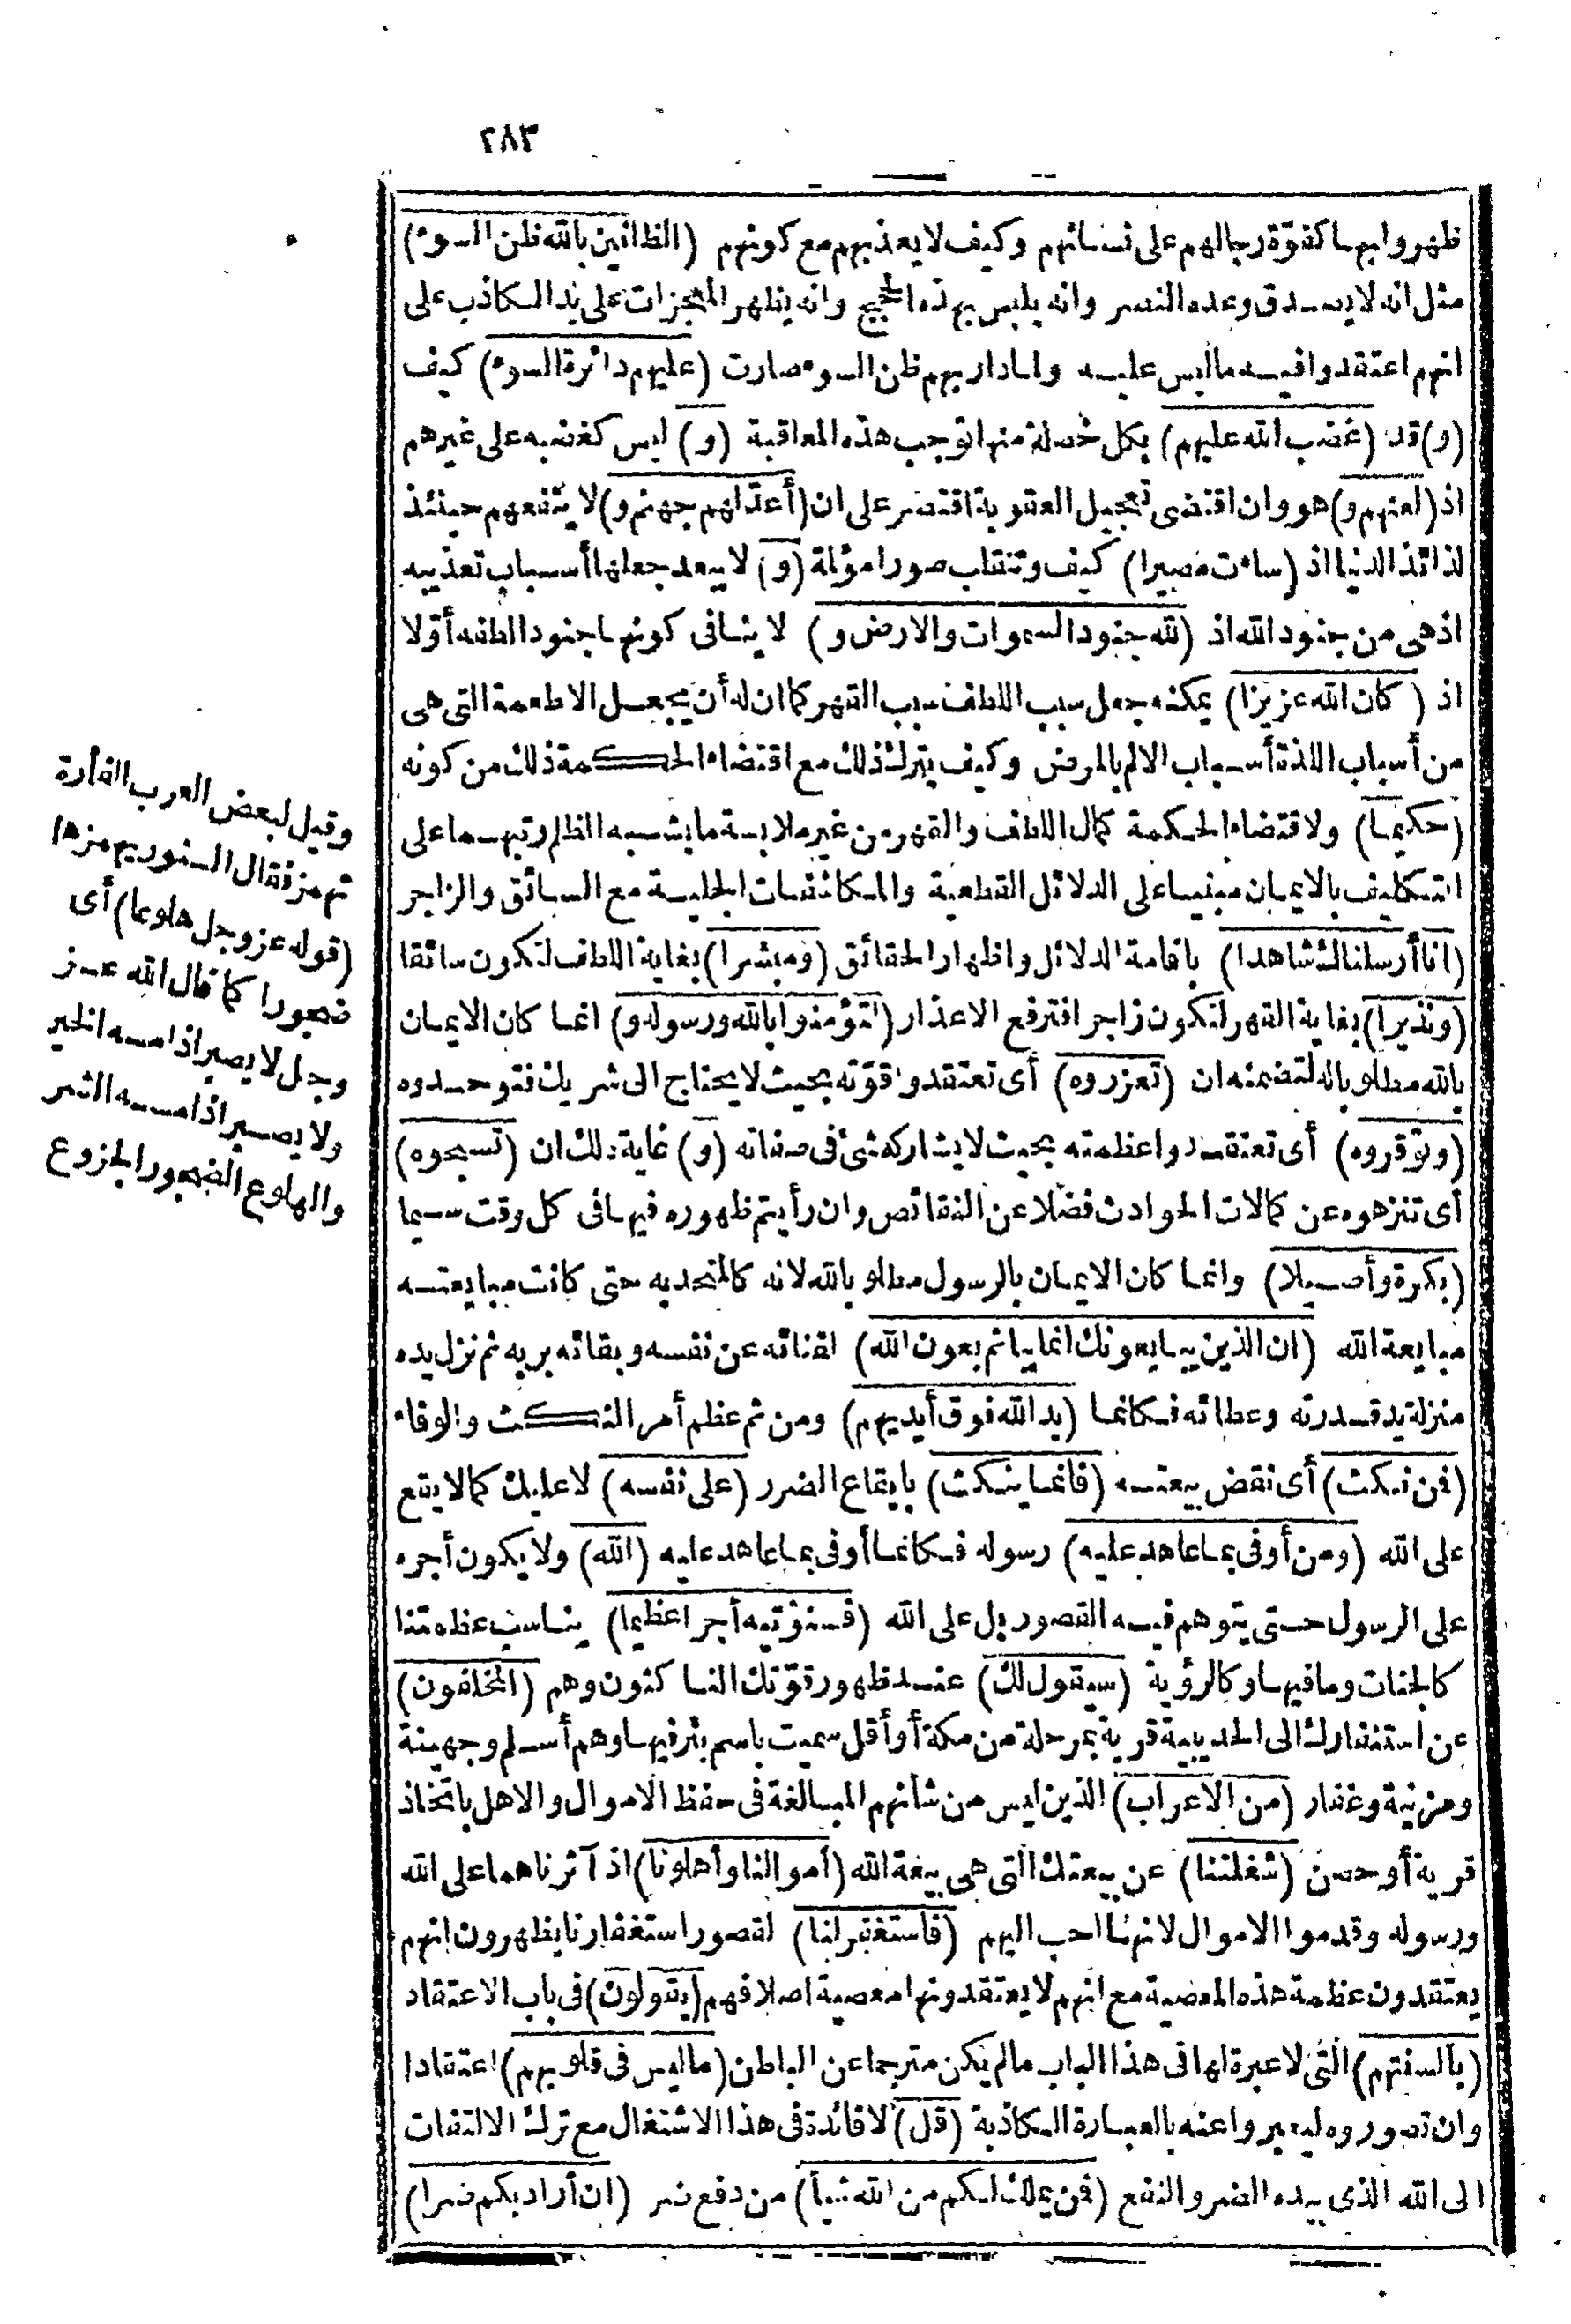 ٢٨٣
ظهروا بهما كقوّة رجالهم على نسائهم وكيف لا يعذبهم مع كونهم (الظانين بالله ظن السوء)
مثل انه لا يصدق وعده النصر وانه يلبس بهذه الحجج وانه يظهر المعجزات على يد الكاذب على
انهم اعتقدوا فيه ما ليس عليه ولما دار بهم ظن السوء صارت (عليهم دائرة السوء) كيف
(و) قد (غضب الله عليهم) بكل خصلة منها توجب هذه المعاقبة (و) ليس كغضبه على غيرهم
اذ (لعنهم و) هو وان اقتضى تعجيل العقوبة اقتصر على ان (أعدّ لهم جهنم و) لا ينفعهم حينئذ
لذائذ الدنيا اذ (ساءت مصيرا) كيف وتنقلب صورا مؤلمة (و) لا يبعد جعلها أسباب تعذيبه
اذ هى من جنود الله اذ (لله جنود السموات والارض و) لا ينافى كونها جنود الطفه أوّلا
اذ (كان الله عزيزا) يمكنه جعل سبب اللطف سبب القهر كما ان له أن يجعل الاطعمة التى هى
من أسباب اللذة أسباب الالم بالمرض وكيف يترك ذلك مع اقتضاء الحكمة ذلك من كونه
(حكيما) ولاقتضاء الحكمة كمال اللطف والقهر من غير ملابسة ما يشبه الظلم رتبهما على
التكليف بالايمان مبنيا على الدلائل القطعية والمكاشفات الجلية مع السائق والزاجر
(انا أرسلناك شاهدا) باقامة الدلائل واظهار الحقائق (ومبشرا) بغاية اللطف لتكون سائقا
(ونذيرا) بغاية القهر لتكون زاجرا فترفع الاعذار (لتؤمنوا بالله ورسوله و) انما كان الايمان
بالله مطلوبا له لتضمنه ان (تعزروه) أى تعتقدوا قوّته بحيث لا يحتاج الى شريك فتوحدوه
(وتوقروه) أى تعتقدوا عظمته بحيث لا يشاركه شئ فى صفاته (و) غاية ذلك ان (تسبحوه)
أى تنزهوه عن كمالات الحوادث فضلا عن النقائص وان رأيتم ظهوره فيها فى كل وقت سيما
(بكرة وأصيلا) وانما كان الايمان بالرسول مطلوبا لله لانه كالمتحد به حتى كانت مبايعته
مبايعة الله (ان الذين يبايعونك انما يبايعون الله) لفنائه عن نفسه وبقائه بربه ثم نزل يده
منزلة يد قدرته وعطائه فكانما (يد الله فوق أيديهم) ومن ثم عظم أمر النكث والوفاء
(فمن نكث) أى نقض بيعته (فانما ينكث) بايقاع الضرر (على نفسه) لا عليك كما لا يقع
على الله (ومن أوفى بما عاهد عليه) رسوله فكانما أوفى بما عاهد عليه (الله) ولا يكون أجره
على الرسول حتى يتوهم فيه القصور بل على الله (فسنؤتيه أجرا عظيما) يناسب عظمتنا
كالجنات وما فيها وكالرؤية (سيقول لك) عند ظهور قوّتك الناكثون وهم (المخلفون)
عن استنفارك الى الحديبية قرية بمرحلة من مكة أو أقل سميت باسم بئر فيها وهم أسلم وجهينة
ومزينة وغفار (من الاعراب) الذين ليس من شأنهم المبالغة فى حفظ الاموال والاهل باتخاذ
قرية أو حصن (شغلتنا) عن بيعتك التى هى بيعة الله (أموالنا وأهلونا) اذ آثرناهما على الله
ورسوله وقدموا الاموال لانها احب اليهم (فاستغفر لنا) لقصور استغفارنا يظهرون انهم
يعتقدون عظمة هذه المعصية مع انهم لا يعتقدونها معصية اصلا فهم (يقولون) فى باب الاعتقاد
(بألسنتهم) التى لا عبرة لها فى هذا الباب ما لم يكن مترجما عن الباطن (ما ليس فى قلوبهم) اعتقادا
وان تصوروه ليعبروا عنه بالعبارة الكاذبة (قل) لا فائدة فى هذا الاشتغال مع ترك الالتفات
الى الله الذى بيده الضر والنفع (فمن يملك لكم من الله شيأ) من دفع ضر (ان أراد بكم ضرا)
وقيل لبعض العرب الفأرة
تهمز فقال السنور يهمزها
(قوله عز وجل هلوعا) أى
ضجورا كما قال الله عز
وجل لا يصبر اذا مسه الخير
ولا يصبر اذا مسه الشر
والهلوع الضجور الجزوع